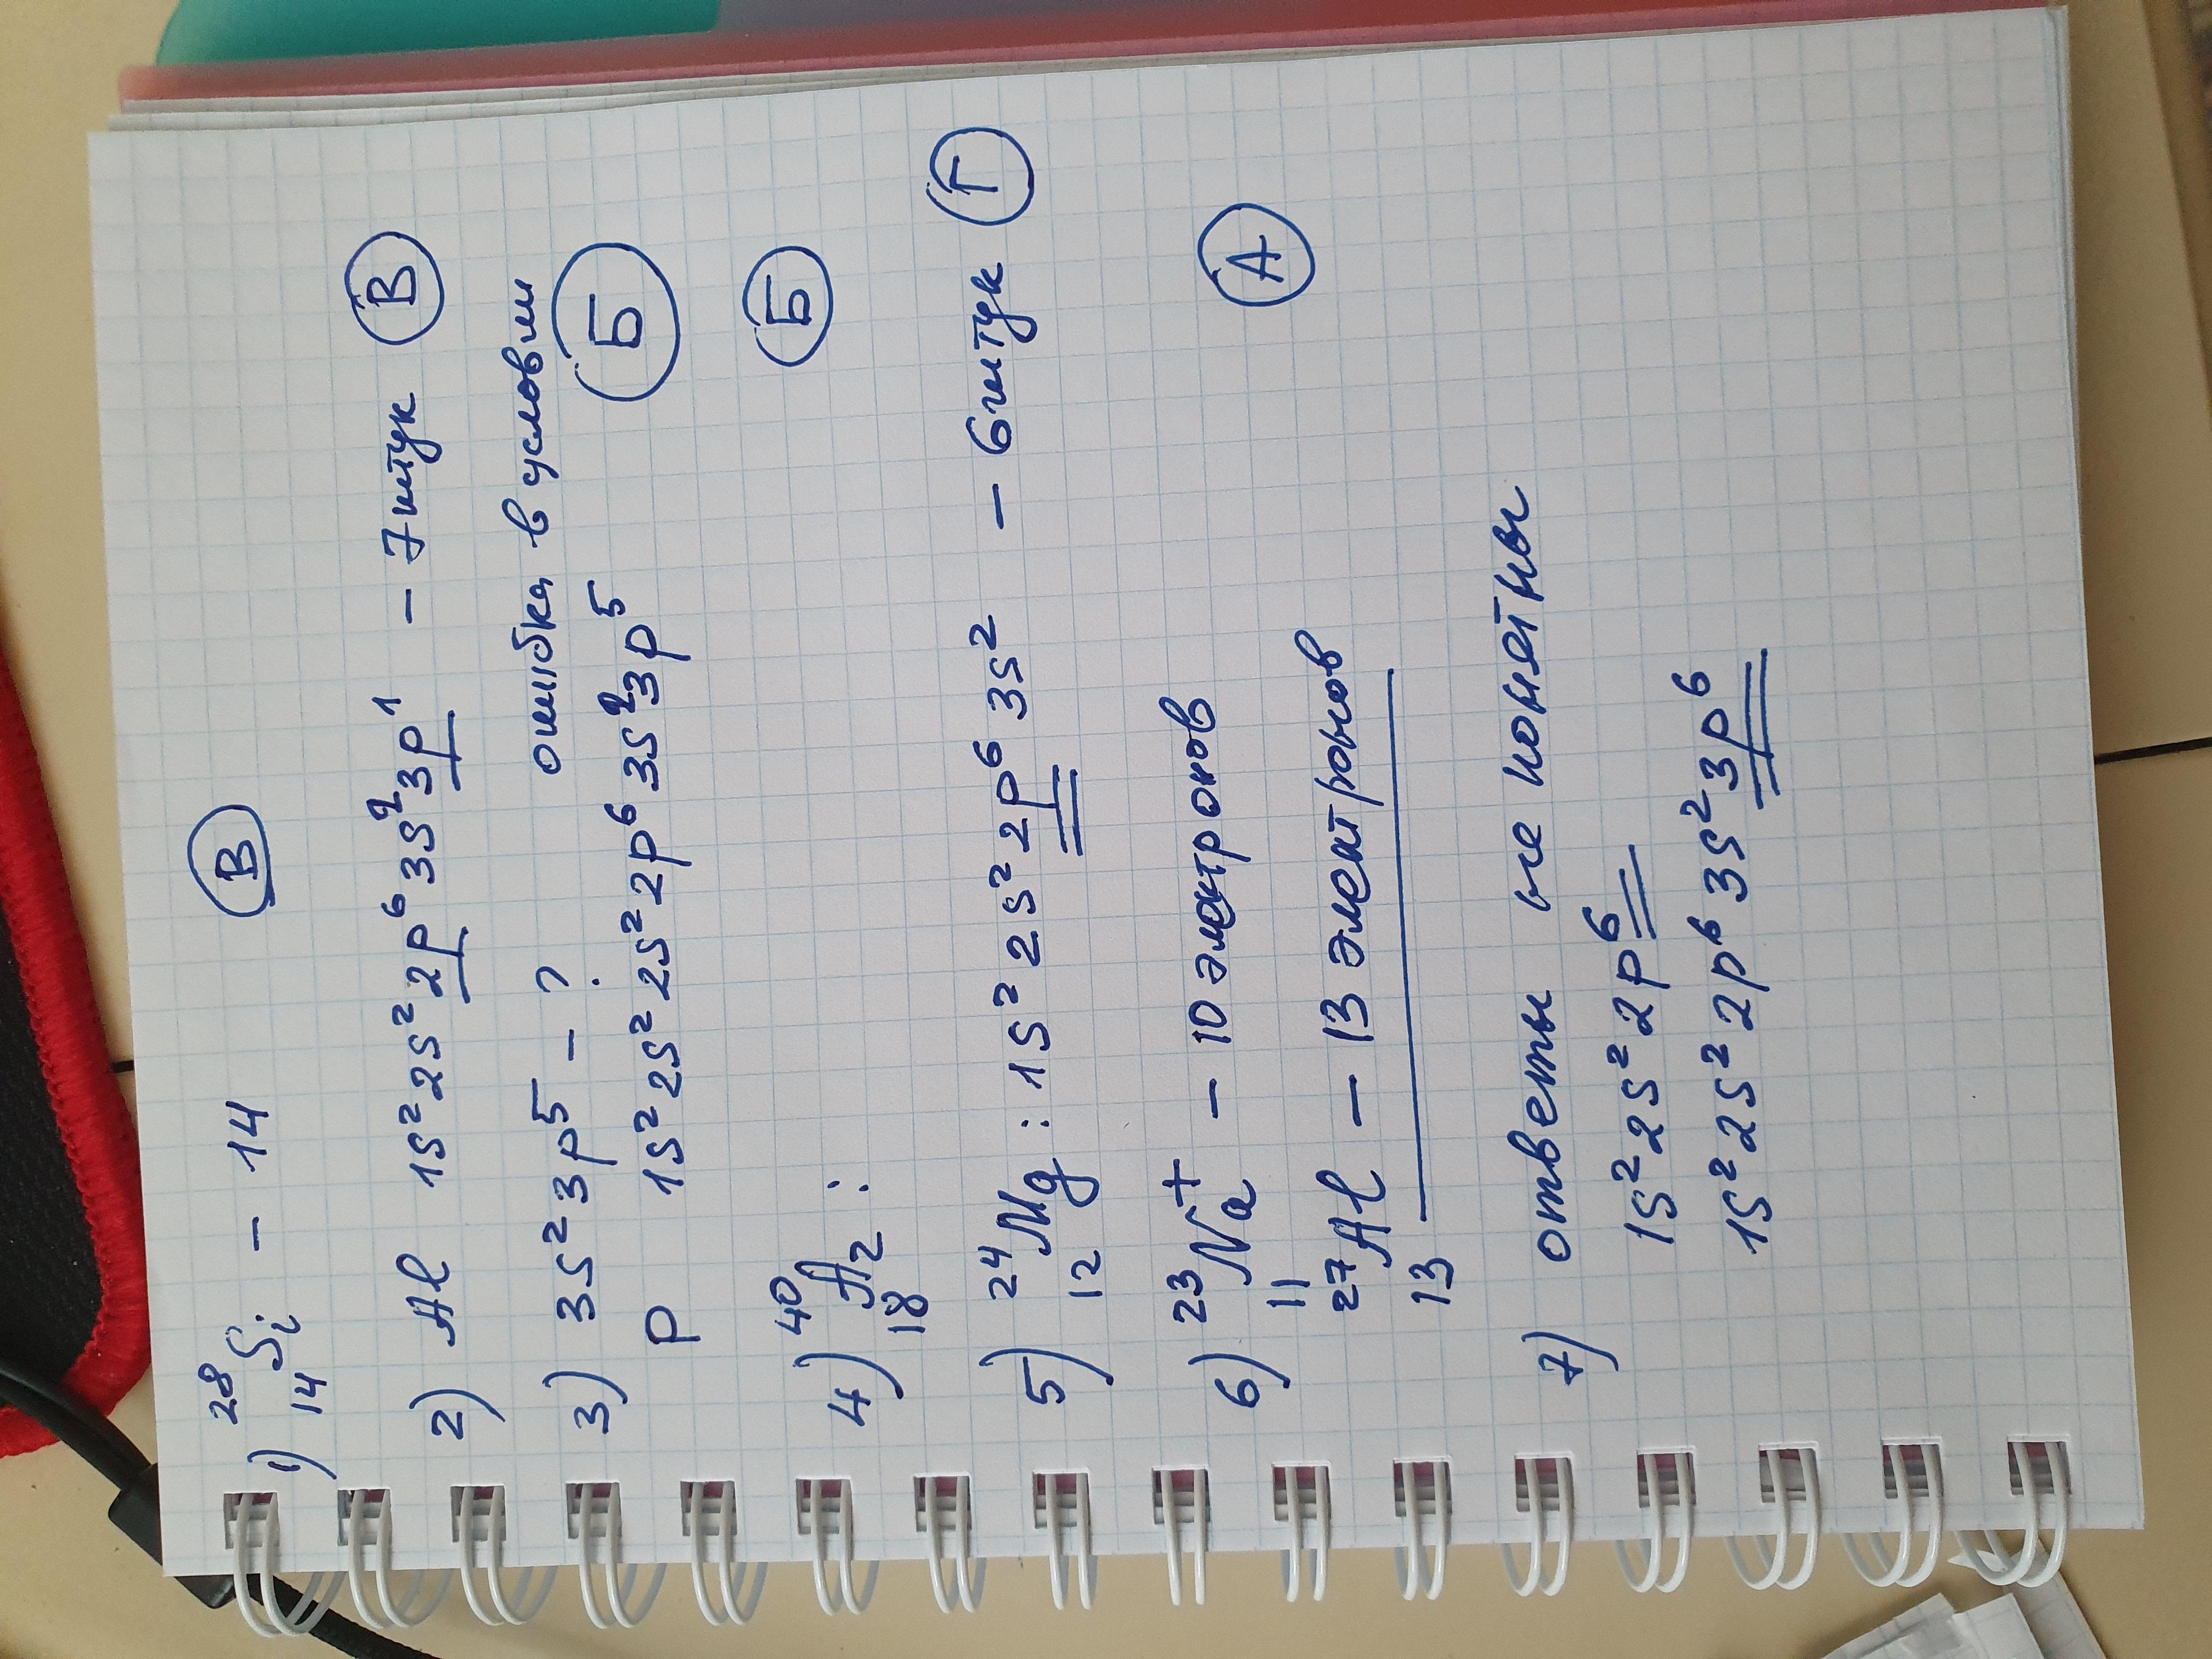 1) ²⁸₁₄Si – 14 В
2) Al 1s² 2s² 2p⁶ 3s² 3p¹ – 7штук В
3) 3s² 3p⁵ – ? ошибка в условии
P 1s² 2s² 2p⁶ 3s² 3p⁵ Б
4) ⁴⁰₁₈Az : Б
5) ²⁴₁₂Mg : 1s² 2s² 2p⁶ 3s² – 6штук Г
6) ²³₁₁Na⁺ – 10 электронов
²⁷₁₃Al – 13 электронов А
7) ответы не понятны
1s² 2s² 2p⁶
1s² 2s² 2p⁶ 3s² 3p⁶